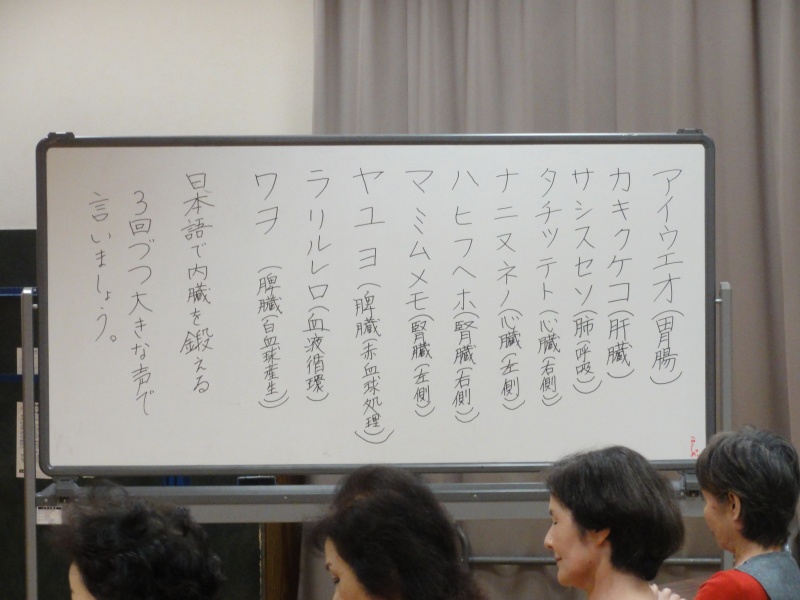 アイウエオ(胃腸)
カキクケコ(肝臓)
サシスセソ(肺(呼吸))
タチツテト(心臓(右側))
ナニヌネノ(心臓(左側))
ハヒフヘホ(腎臓(右側))
マミムメモ(腎臓(左側))
ヤユヨ(脾臓(赤血球処理))
ラリルレロ(血液循環)
ワヲ(脾臓(白血球産生))
日本語で内臓を鍛える
3回づつ大きな声で
言いましょう。